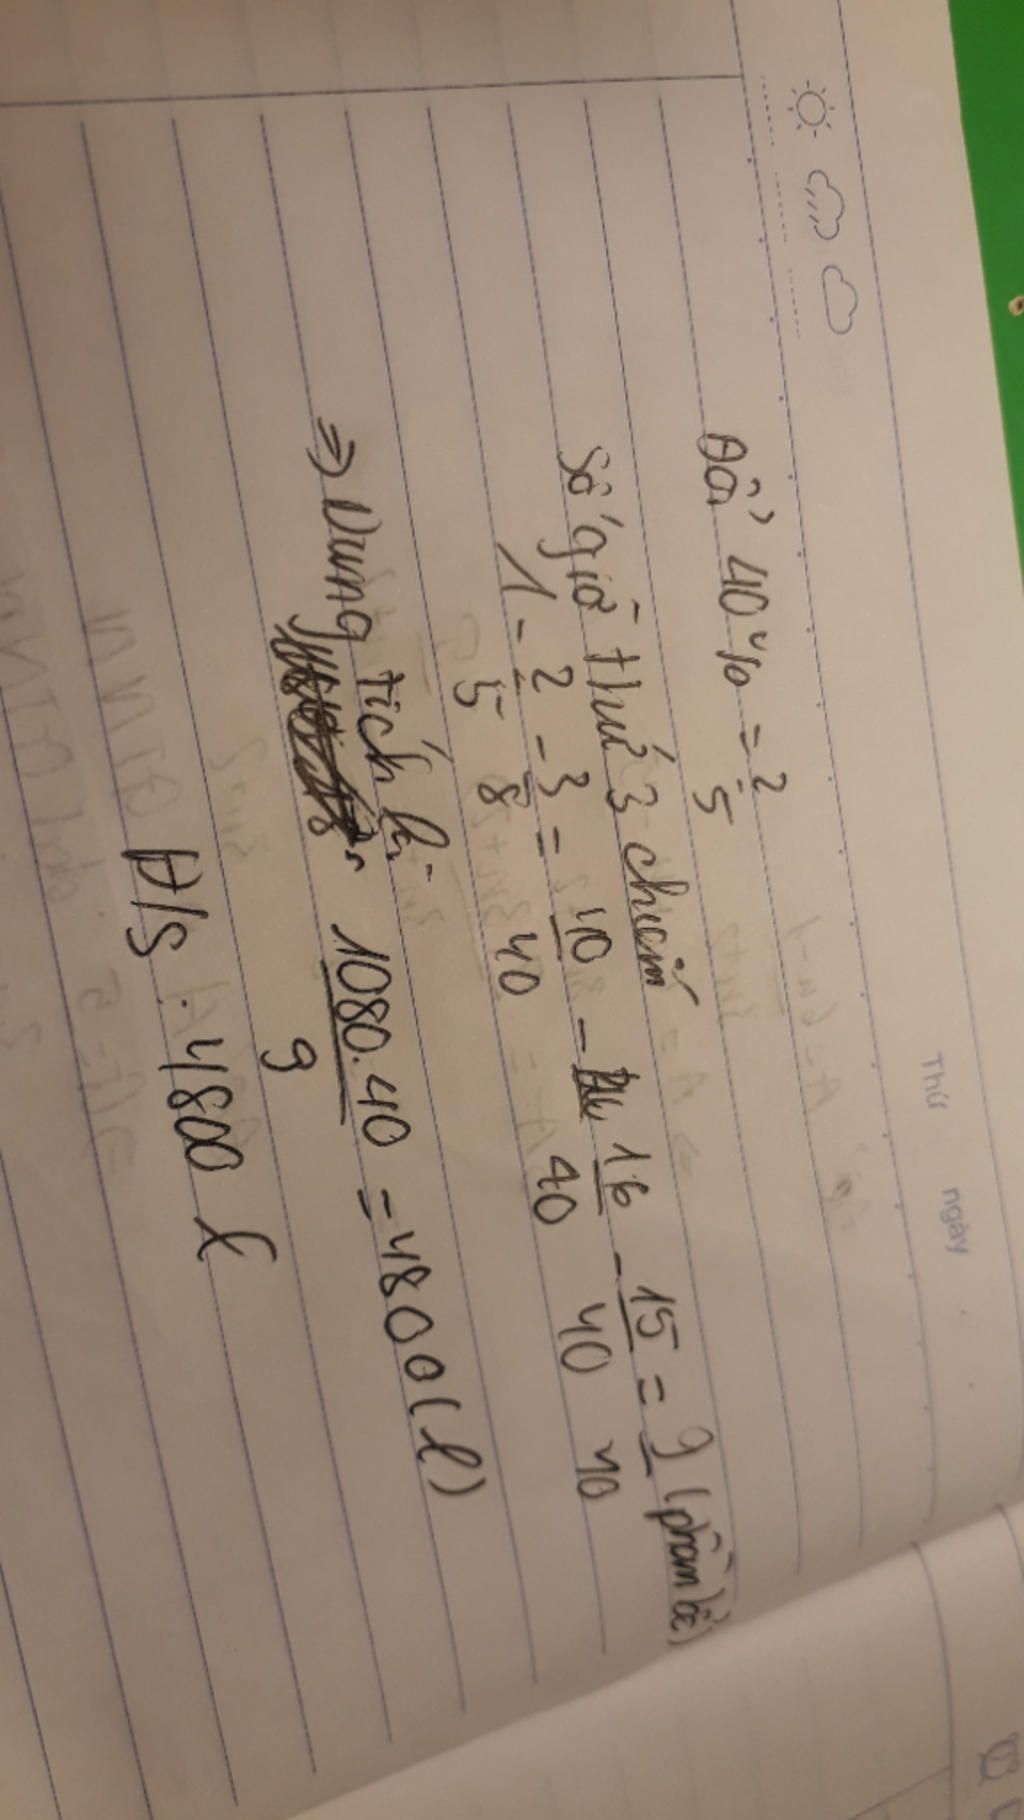 Thứ ngày
Đổi 40% = 2/5
Số giờ thứ 3 chiếm
1 - 2/5 - 3/8 = 40/40 - 16/40 - 15/40 = 9/40 (phần bể)
=> Dung tích là: 1080.40/9 = 4800 (l)
Đ/S: 4800 l